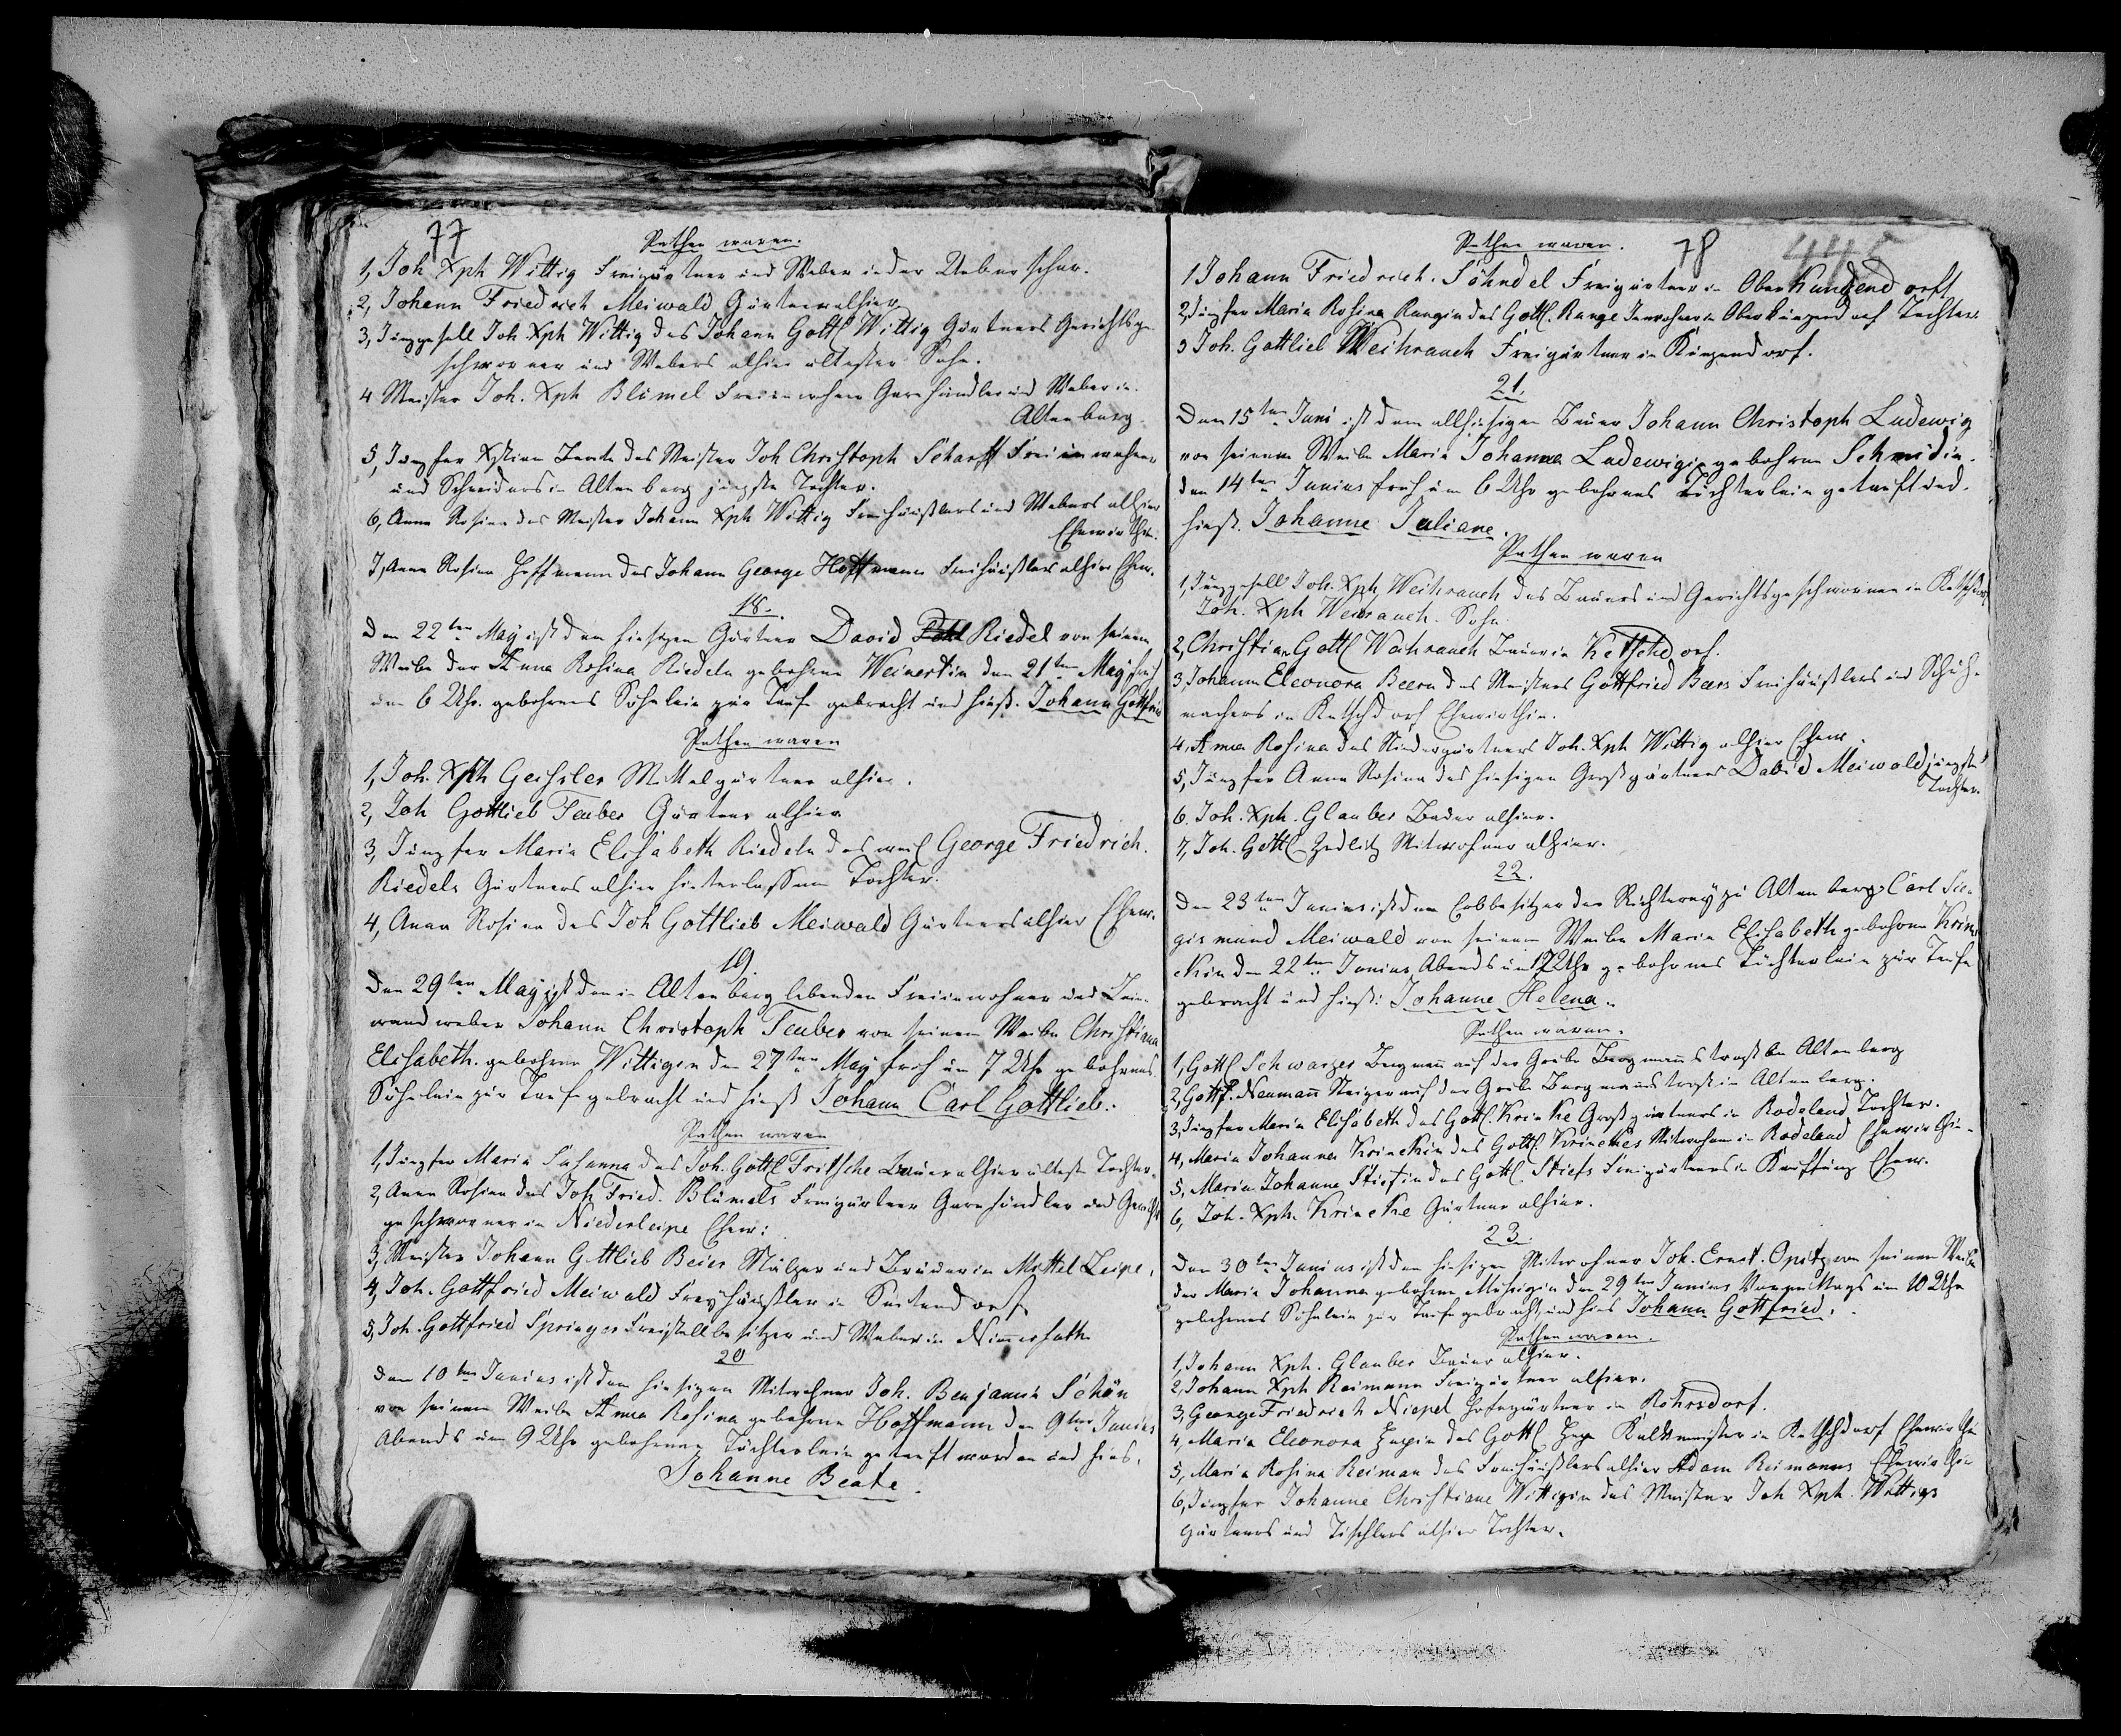 77
Pathen waren.
1, Joh. Xph Wittig Freigärtner und Weber in der Ueberschar.
2, Johann Friedrich Meiwald Gärtner alhier
3, Junggesell Joh. Xph Wittig des Johann Gottl Wittig Gärtners Gerichtsge-
schworner und Webers alhier ältester Sohn.
4 Meister Joh. Xph Blümel Freiinwohner Garnhändler und Weber in
Altenberg.
5, Jungfer Beate des Meister Joh Christoph Scharff Freiinwohner
und Schneiders in Altenberg jüngste Tochter.
6, Anna Rosina des Meister Johann Xph Wittig Freihäußlers und Webers alhier
Ehewirthin.
7, Anna Rosina Hoffmann des Johann George Hoffmann Freihäußlers alhier Ehew.
18.
Den 22ten May ist dem hiesigen Gärtner David Pohl Riedel von seinem
Weibe der Anna Rosina Riedeln gebohrne Weinertin den 21ten May früh
um 6 Uhr gebohrnes Söhnlein zur Taufe gebracht und hieß. Johann Gottfried
Pathen waren
1, Joh. Xph Geissler Mittelgärtner alhier.
2, Joh Gottlieb Teuber Gärtner alhier
3, Jungfer Maria Elisabeth Riedeln des weil George Friedrich
Riedels Gärtners alhier hinterlassene Tochter.
4, Anna Rosina des Joh Gottlieb Meiwald Gärtners alhier Ehew.
19.
Den 29ten May ist dem in Altenberg lebenden Freiinwohner und Lein-
wandweber Johann Christoph Teuber von seinem Weibe Christiana
Elisabeth gebohrne Wittigin den 27ten May früh um 7 Uhr gebohrnes
Söhnlein zur Taufe gebracht und hieß Johann Carl Gottlieb.
Pathen waren
1, Jungfer Maria Susanna des Joh. Gottl Fritsche Bauer alhier älteste Tochter.
2, Anna Rosina des Joh Fried. Blümels Freigärtner Garnhändler und Gerichts
geschworner in Niederleipe Ehew:
3, Meister Johann Gottlieb Beier Mälzer und Brauer in Mittel Leipe.
4, Joh. Gottfried Meiwald Freyhäußler in Seitendorf
5, Joh. Gottfried Springer Freistellbesitzer und Weber in Nimmersath
20
Den 10ten Junius ist dem hiesigen Mitwohner Joh. Benjamin Schön
von seinem Weibe Anna Rosina gebohrne Hoffmann den 9ten Junius
Abends um 9 Uhr gebohrnes Töchterlein getauft worden und hies.
Johanne Beate.
78
445
Pathen waren.
1 Johann Friedrich Söhndel Freigärtner in Ober Kunzendorff
2, Jungfer Maria Rosina Rangin des Gottl. Range Inwohner in Oberkunzendorf Tochter
3 Joh. Gottlieb Weihrauch Freigärtner in Kunzendorf.
21.
Den 15ten Juni ist dem allhiesigen Bauer Johann Christoph Ludewig
von seinem Weibe Maria Johanna Ludewigin gebohrne Schmidin
den 14ten Junius früh um 6 Uhr gebohrnes Töchterlein getauft und
hieß. Johanne Juliane.
Pathen waren
1, Junggesell Joh. Xph Weihrauch des Bauers und Gerichtsgeschworner in Ketschdorf
Joh. Xph Weirauch. Sohn
2, Christian Gottl Weihrauch Bauer in Ketschdorf.
3, Johanna Eleonora Beern des Meisters Gottfried Beers Freihäußlers und Schuh-
machers in Ketschdorf Ehewirthin.
4, Anna Rosina des Niedergärtners Joh. Xph Wittig alhier Ehew.
5, Jungfer Anna Rosina des hiesigen Großgärtners David Meiwald jüngste
Tochter.
6. Joh. Xph. Glauber Bauer alhier.
7, Joh. Gottl Zedlitz Mitwohner alhier.
22.
Den 23ten Junius ist dem Erbbesitzer der Richterey zu Altenberg Carl Sie-
gismund Meiwald von seinem Weibe Maria Elisabeth gebohrne Krine
ckin den 22ten Junius Abends um 12 Uhr gebohrnes Töchterlein zur Taufe
gebracht und hieß: Johanne Helena.
Pathen waren.
1, Gottl Schwarzer Bergmann auf der Grube Bergmannstrost bei Altenberg
2, Gottf. Neumann Steiger auf der Grube Bergmannstrost in Altenberg.
3, Jungfer Maria Elisabeth des Gottl. Krincke Großgärtners in Rodeland Tochter.
4, Maria Johanna Krinckin des Gottl. Krinckes Mitwohner in Rodeland Ehewirthin.
5, Maria Johanna Stiefin des Gottl Stiefs Freigärtners in Kauffung Ehew.
6, Joh. Xph. Krincke Gärtner alhier.
23.
Den 30ten Junius ist dem hiesigen Mitwohner Joh. Ernst. Opitz von seinem Weibe
der Maria Johanna gebohrne den 29ten Junius Vormittags um 10 Uhr
gebohrnes Söhnlein zur Taufe gebracht und hies Johann Gottfried.
Pathen waren.
1, Johann Xph. Glauber Bauer alhier.
2, Johann Xph Reimann Freigärtner alhier.
3, George Friedrich Niepel Hofegärtner in Rohrsdorf.
4, Maria Eleonora des Gottl in Ketschdorf Ehewirthin
5, Maria Rosina Reiman des Freihäußlers alhier Adam Reimanns Ehewirthin
6, Jungfer Johanne Christiane Wittigin des Meister Joh Xph. Wittigs
Gärtners und Tischlers alhier Tochter.